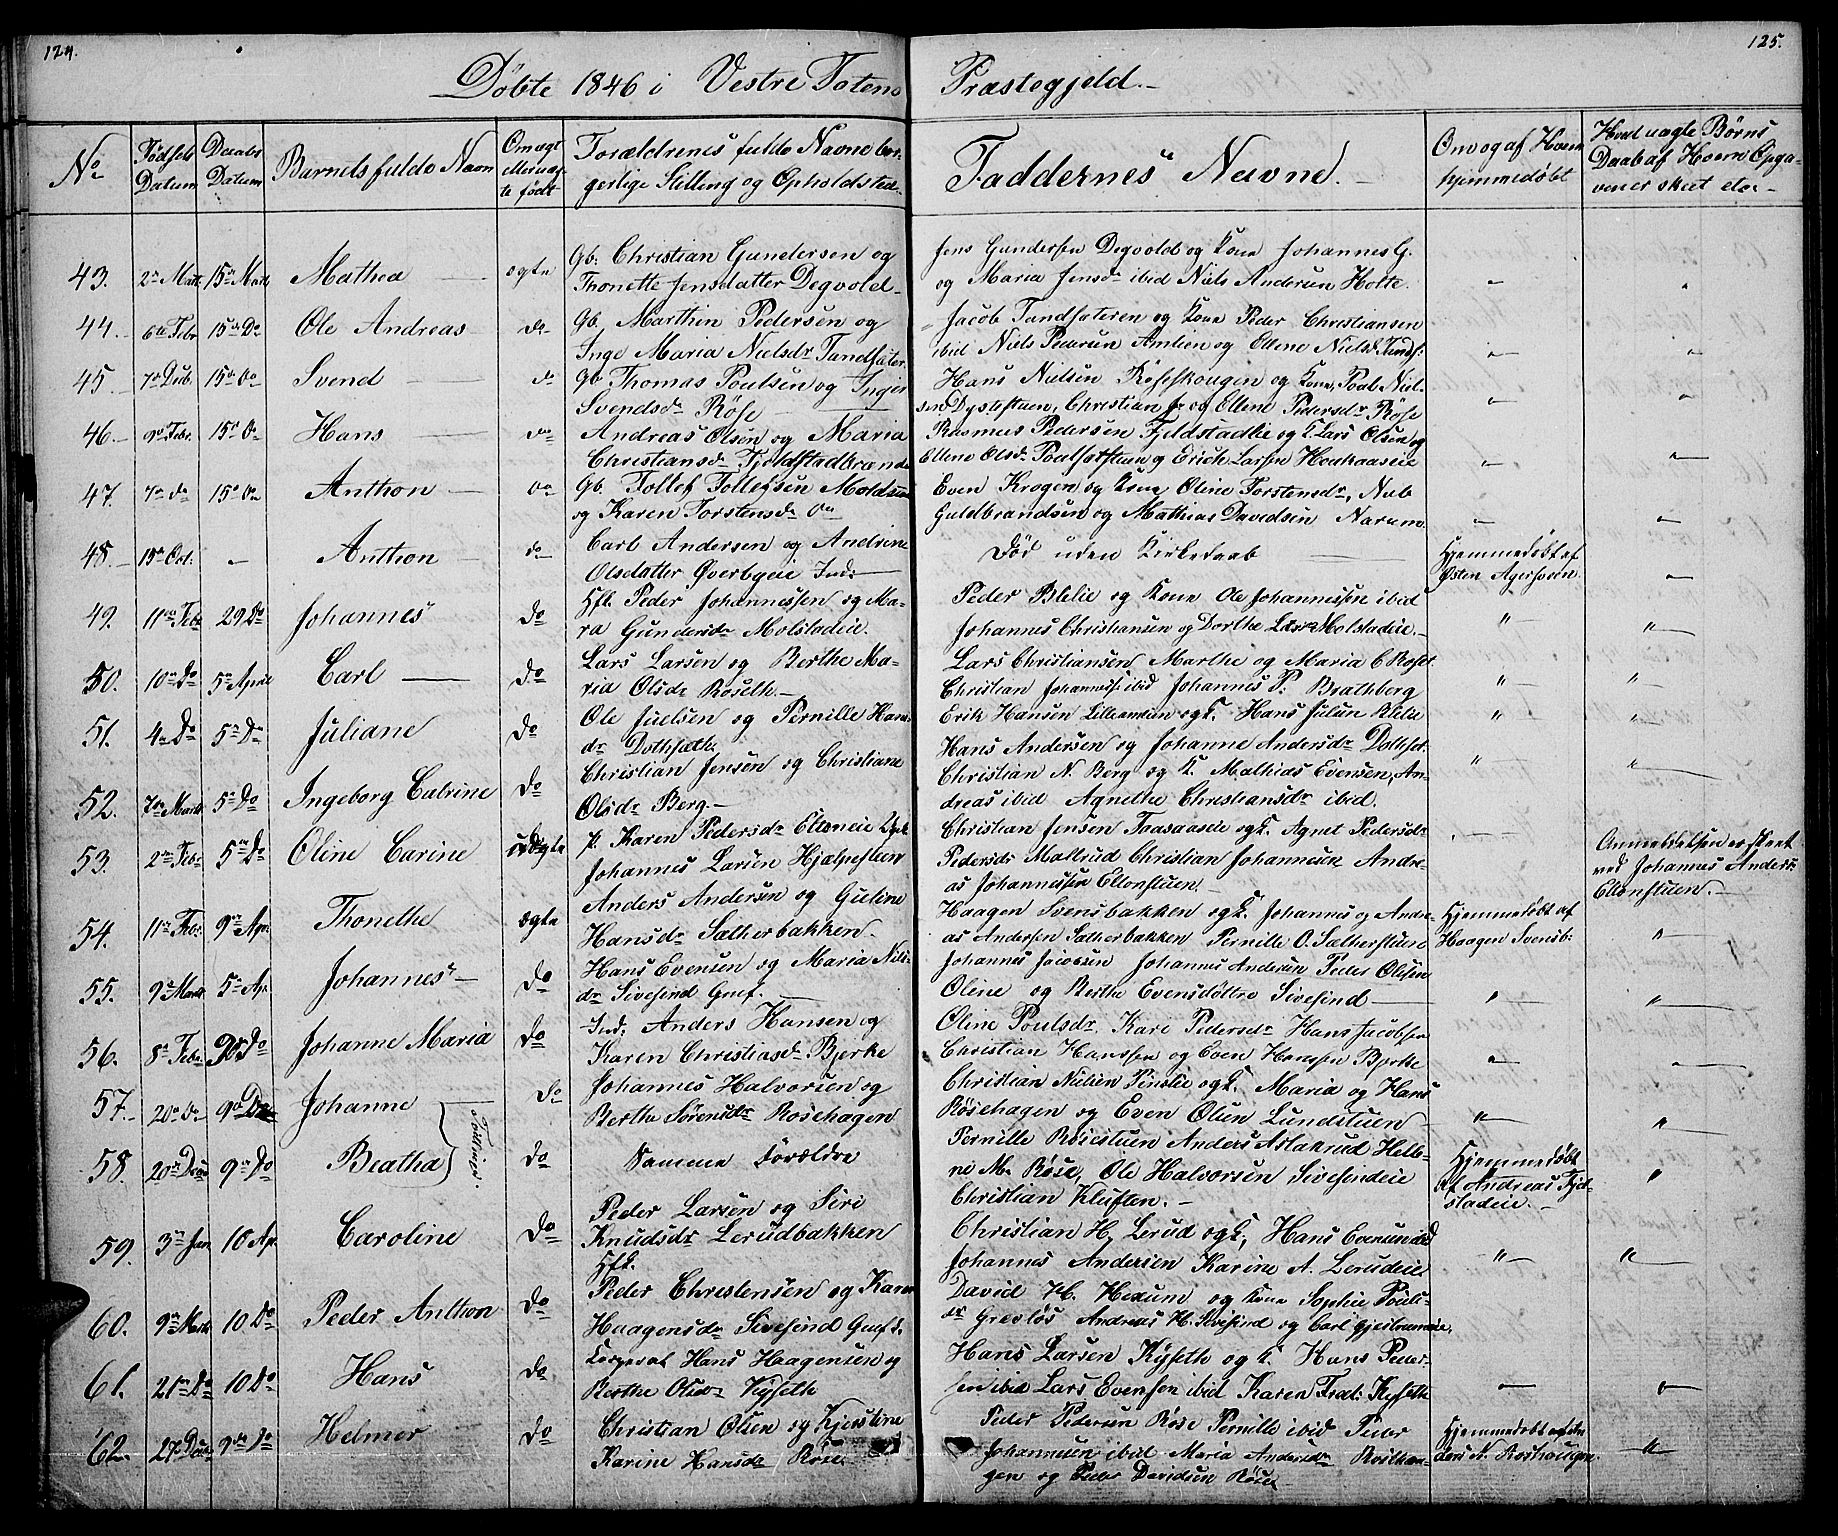 124.
125.
Døbte 1846 i Vestre Totens Præstegjeld.-
No
Fødsels Datum
Daabs Datum
Barnets fulde Navn
Om ægte eller uægte født
Forældrenes fulde Navne borgerlige Stilling og Opholdsted
Faddernes Navne.
Om og af Hvem hjemmedøbt
Hvad uægte Børns Daab af Hvem Opgaven er skeet etc-
43. 2n Mart. 15n Mart. Mathea — ægte
Gb. Christian Gundersen og
Thonette Jensdatter Degvold-
Jens Gundersen Degvold og Kone Johannes G.
og Maria Jensdr ibid Niels Andersen Holte.
44. 6te Febr 15n Do Ole Andreas do
Gb. Marthin Pedersen og
Inge Maria Nielsdr Tandsæter
Jacob Tandsæteren og Kone Peder Christiansen
ibid Niels Pedersen Amlien og Ellene Nielsdr Tands:
45. 15n do Svend — do
Gb Thomas Poulsen og Inger
Svendsdr Røse
Hans Nielsen Røseskougen og Kone, Poul Niel-
sen Dystestuen, Christian og Ellene Pedersdr Røse
46. 9n Febr. 15n do Hans — do
Andreas Olsen og Maria
Christiansdr Fjeldstadbrænde
Rasmus Pedersen Fjeldstadlie og K. Lars Olsen og
Ellene Olsdr og Erich Larsen
47. 7n do 15n do Anthon — do
Gb. Tollef Tollefsen Molds
og Karen Torstensdr do
Even Krogen og Kone Oline Torstensdr, Niels
Guldbrandsen og Mathias Davidsen Narum
48. 15n Oct. — Anthon — do
Carl Andersen og Andrine
Olsdatter Øverbyeie Ind:
Død uden Kirkedaab
Hjemmedøbt af
Østen Agersveen
49. 11n Febr 29 Do Johannes Do
Hfl. Peder Johannessen og Ma-
ria Gundersdr Molstadeie.
Peder Blilie og Kone Ole Johannessen ibid
Johannes Christiansen og Dorthe Lars Molstadeie.
50. 10n Do 5n April Carl — Do
Lars Larsen og Berthe Ma-
ria Olsdr Roseth.-
Lars Christiansen Marthe og Maria C Roset
Christian Johannes ibid Johannes P: Brathberg
51. 4n Do 5n Do Juliane Do
Ole Juelsen og Pernille Hans
dr Dothseth
Erik Hansen og K. Hans Julsen Blilie
Hans Andersen og Johanne Andersdr Dothset
52. 7n Marts 5n Do Ingeborg Catrine Do
Christian Jensen og Christiane
Olsdr Berg.-
Christian N. Berg og K. Mathias Evensen, An-
dreas ibid Agnethe Christiansdr ibid.
53. 2n Febr 5n Do Oline Carine uægte
P. Karen Pedersdr Eltoneie Ugift
Johannes Larsen Hjælpesteen
Christian Jensen Taasaaeie og K. Agnet Pedersdr
Pedersdr Maltrud Christian Johannesen Andre-
as Johannessen Eltonstuen.-
Anmeldelsen er skeet
ved Johannes Anders:
Eltonstuen.-
54. 11n Febr. 9n Ap. Thonethe ægte
Anders Andersen og Guline
Hansdr Sætherbakken.
Haagen Svensbakken og K. Johannes og Andre-
as Andersen Sætherbakken Pernille O. Sætherstuen
Hjemmedøbt af
Haagen Svensb:
55. 9n Marts 5n Ap. Johannes — Do
Hans Evensen og Maria Nils-
dr Sivesind Gmf.
Johannes Jacobsen Johannes Andersen Peder Olsen
Oline og Berthe Evensdøttre Sivesind
56. 8n Febr. Do Johanne Maria Do
Ind. Anders Hansen og
Karen Christiansdr Bjerke
Oline Poulsdr Kari Pedersdr Hans Jacobsen
Christian Hanssen og Even Hanssen Bjerke
57. 20n do 9n Do Johanne Do
Johannes Halvorsen og
Berthe Sørensdr Rosehagen
Christian Nielsen Finslie og K. Maria og Hans
Røsehagen og Even Olsen Lundstuen
Tvillinger.
58. 20n Do 9n Do Beatha Do
Samme Forældre
Pernille Røsestuen Anders Aslakrud Hele-
ne M. Røse, Ole Halvorsen Sivesindeie
Christian Kluften.-
Hjemmedøbt
af Andreas Fjel-
stadeie.-
59. 3n Jan 10 Ap. Caroline Do
Peder Larsen og Siri
Knudsdr Lerudbakken
Hfl.
Christian H. Lerud og K, Hans Evensen ibid
Johannes Andersen Karine A. Lerudeie
60. 9n Marts 10 Do Peder Anthon Do
Peder Christensen og Karen
Haagensdr Sivesind Gmfd.
David H. Hexum og Kone Sophie Pouls-
dr Grevløs Andreas H. Sivesind og Carl
61. 21n Do 10 Do Hans Do
Korporal Hans Haagensen og
Berthe Olsdr Kyseth
Hans Larsen Kyseth og K. Hans Peder-
sen ibid Lars Evensen ibid Karen Fred: Kyseth
62. 27 9n Do Helmer Do
Christian Olsen og Kjerstine
Karine Hansdr Røse
Peder Pedersen Røse Pernille ibid Peder
Johannesen ibid Maria Andersdr Rosehau-
gen og Peder Davidsen Røse
Hjemmedøbt af An-
ders N. Roshougen